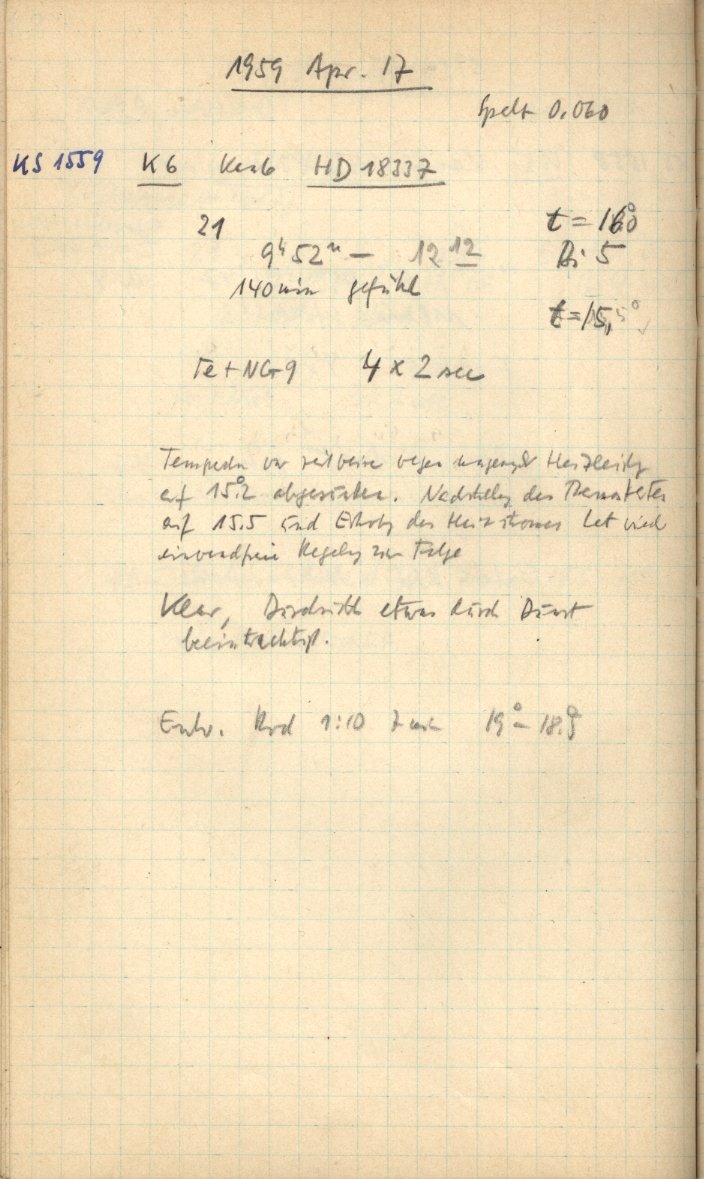 1959 Apr. 17
Spalt 0.060
KS 1559 K6 HD 18337
21 t = 16°0
9h 52m — 12 12 Bi 5
140 min geführt
t = 15,5°
Fe + NG 9 4 x 2 sec
Temperatur war zeitweise wegen Heizleistg
auf 15°.2 abgesunken. Nachstellg des Thermostaten
auf 15.5 und Erhöhg des Heizstromes hat wied
einwandfreie Regelg zur Folge
Klar, Durchsicht etwas durch Dunst
beeinträchtigt.
Entw. Rod 1:10 7 min 19° – 18.°5